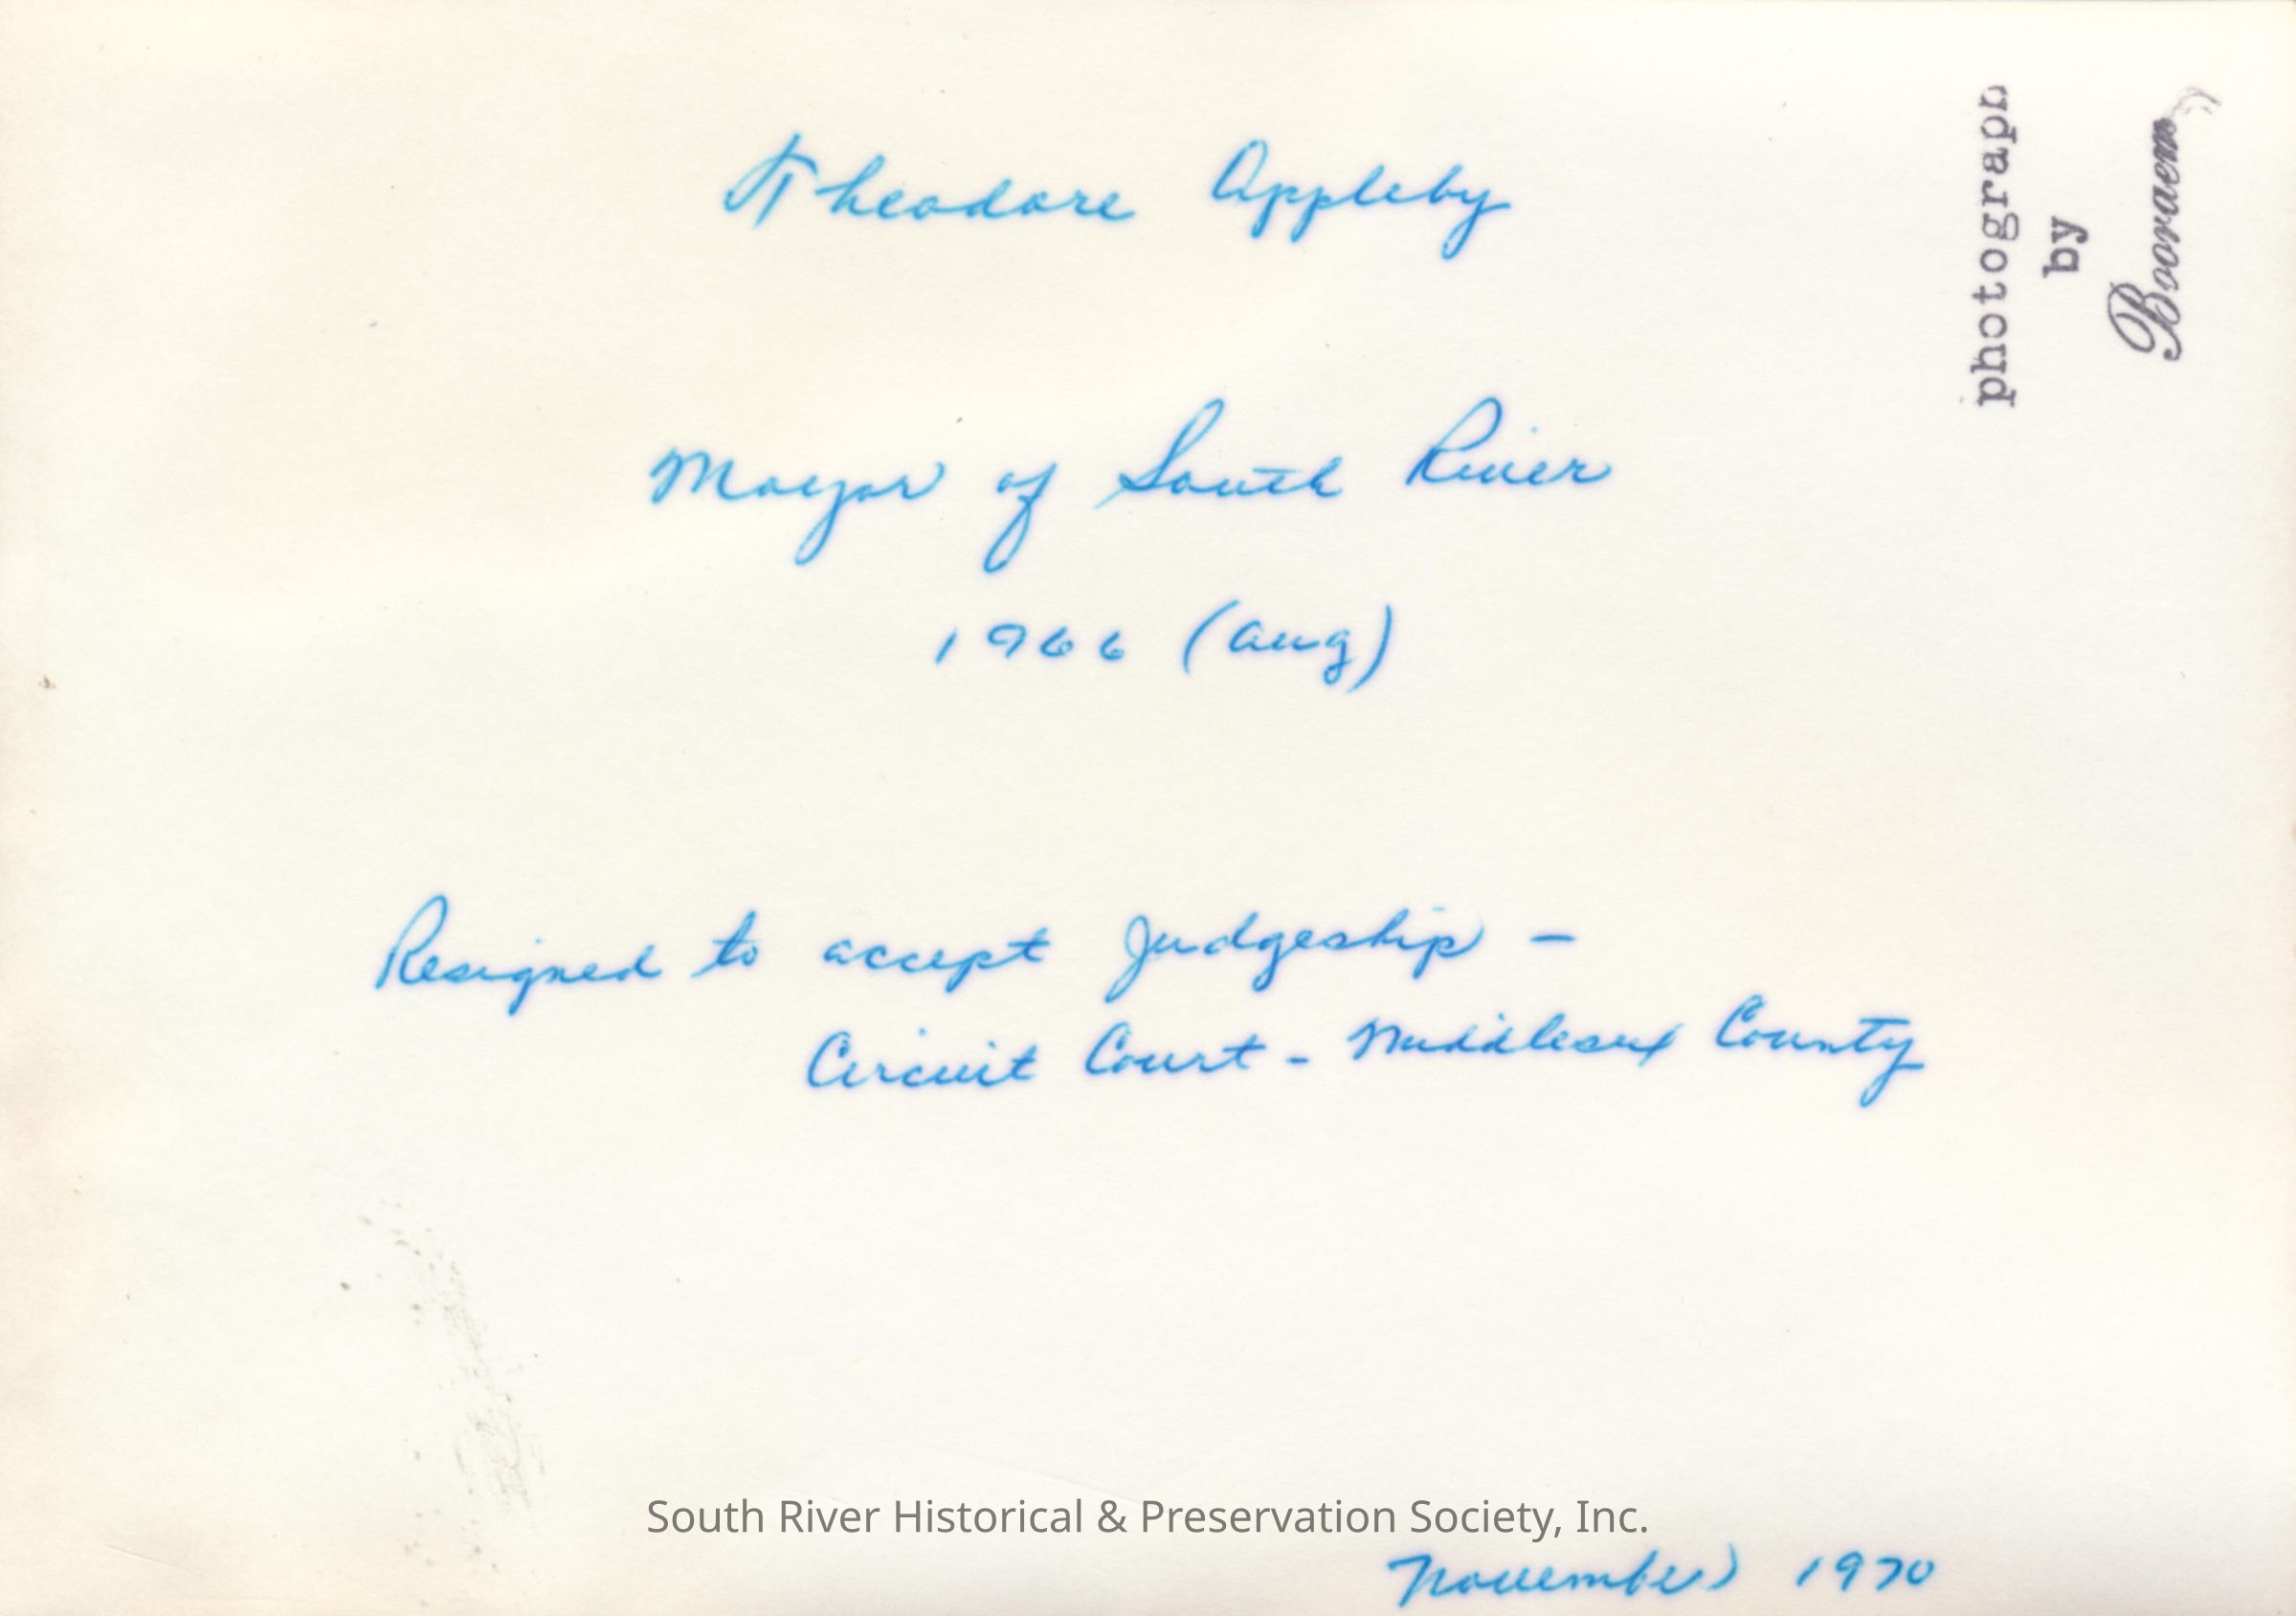 Theodore Appleby
photograph
by
Booraem
Mayor of South River
1966 (Aug)
Resigned to accept Judgeship –
Circuit Court - Middlesex County
South River Historical & Preservation Society, Inc.
November 1970